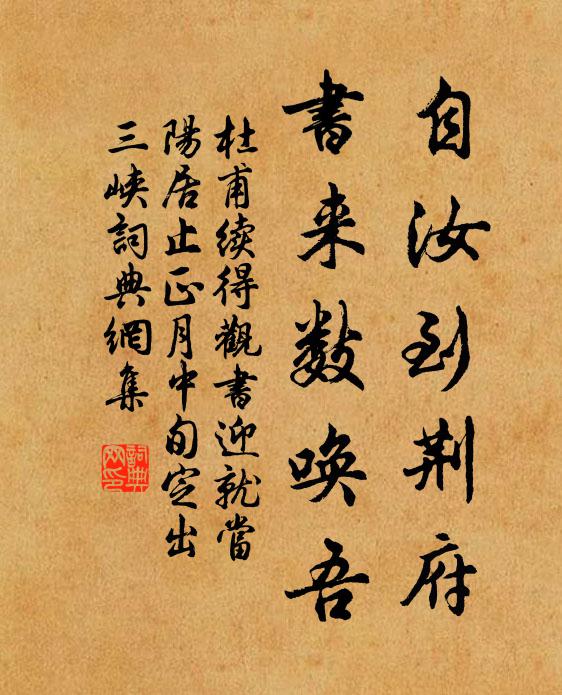 自汝到荆府
書来數唤吾
杜甫續得觀書迎就當
陽居止正月中旬定出
三峽詞典網集
詞典
网印